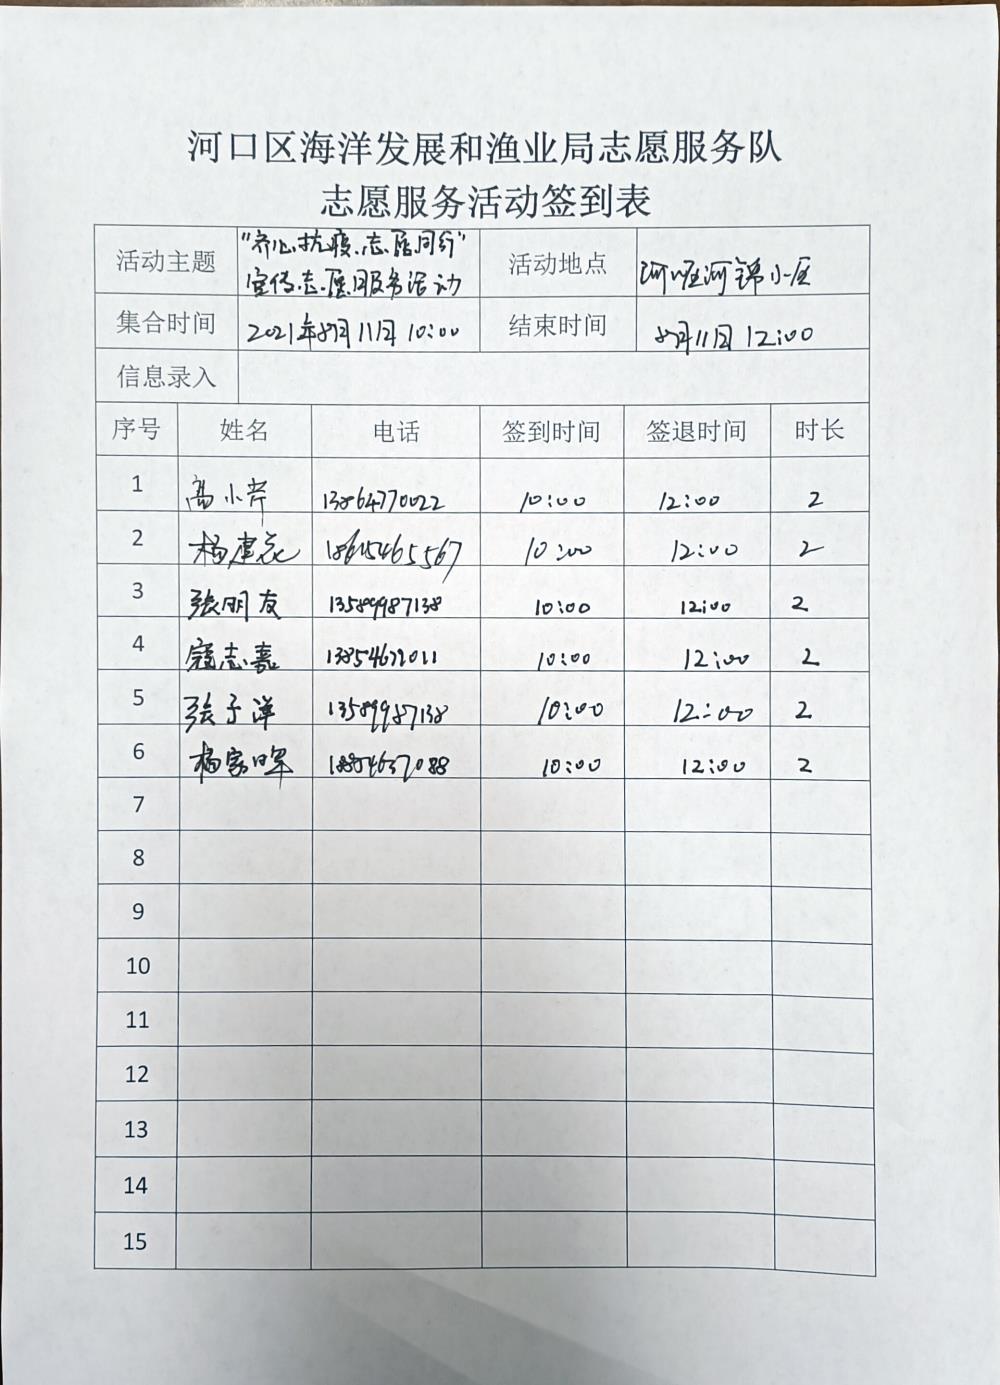 河口区海洋发展和渔业局志愿服务队
志愿服务活动签到表
活动主题 "齐心抗疫.志愿同行" 宣传志愿服务活动 活动地点 河旺河锦小区
集合时间 2021年8月11日 10:00 结束时间 8月11日 12:00
信息录入
序号 姓名 电话 签到时间 签退时间 时长
1 高小芹 13864770022 10:00 12:00 2
2 杨建 18615465567 10:00 12:00 2
3 张明友 13589987138 10:00 12:00 2
4 寇志嘉 13854672011 10:00 12:00 2
5 张子洋 13589987138 10:00 12:00 2
6 杨家晖 18854657088 10:00 12:00 2
7
8
9
10
11
12
13
14
15